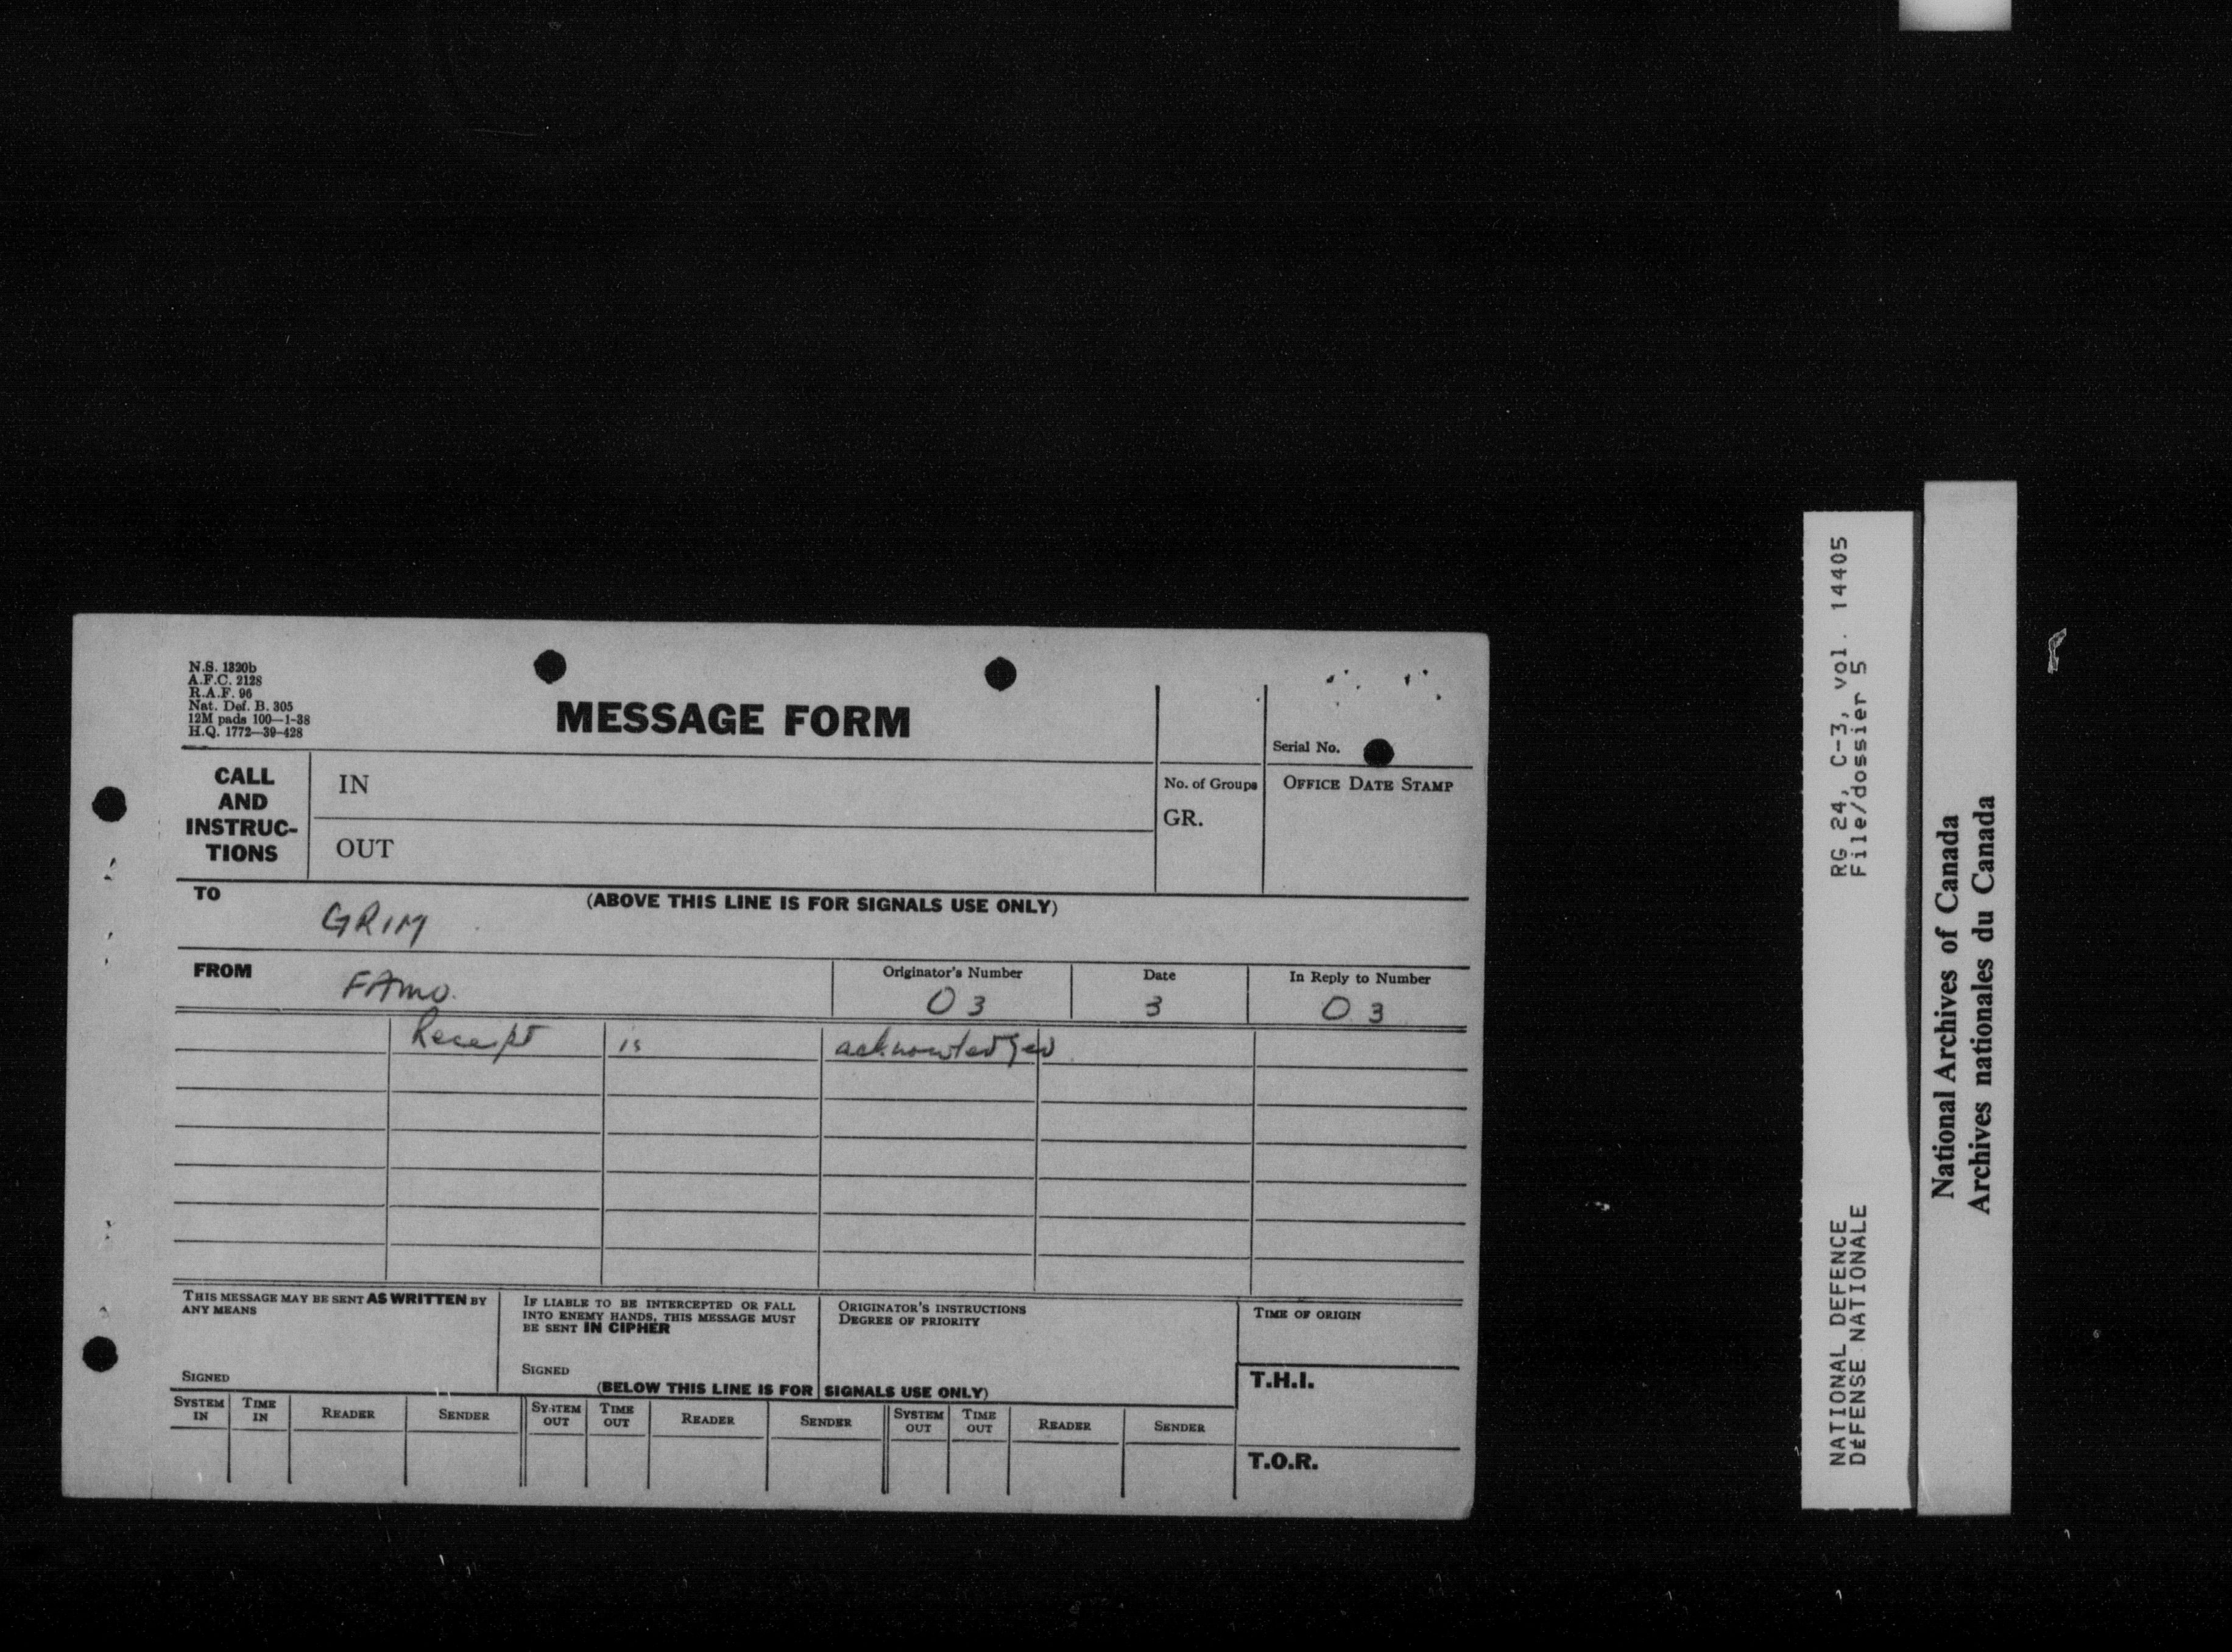 N.S. 1320b
A.F.C. 2128
R.A.F. 96
Nat. Def. B. 305
12M pads 100—1-38
H.Q. 1772—39-428
MESSAGE FORM
Serial No.
CALL AND INSTRUC-TIONS
IN
OUT
No. of Groups
GR.
OFFICE DATE STAMP
(ABOVE THIS LINE IS FOR SIGNALS USE ONLY)
TO GRIM
FROM FAmo.
Originator's Number 03
Date 3
In Reply to Number 03
Receipt is acknowledged
THIS MESSAGE MAY BE SENT AS WRITTEN BY
ANY MEANS
SIGNED
IF LIABLE TO BE INTERCEPTED OR FALL
INTO ENEMY HANDS, THIS MESSAGE MUST
BE SENT IN CIPHER
SIGNED
ORIGINATOR'S INSTRUCTIONS
DEGREE OF PRIORITY
TIME OF ORIGIN
T.H.I.
(BELOW THIS LINE IS FOR SIGNALS USE ONLY)
SYSTEM IN TIME IN READER SENDER SYSTEM OUT TIME OUT READER SENDER SYSTEM OUT TIME OUT READER SENDER
T.O.R.
NATIONAL DEFENCE RG 24, C-3, vol. 14405
DÉFENSE NATIONALE File/dossier 5
National Archives of Canada
Archives nationales du Canada